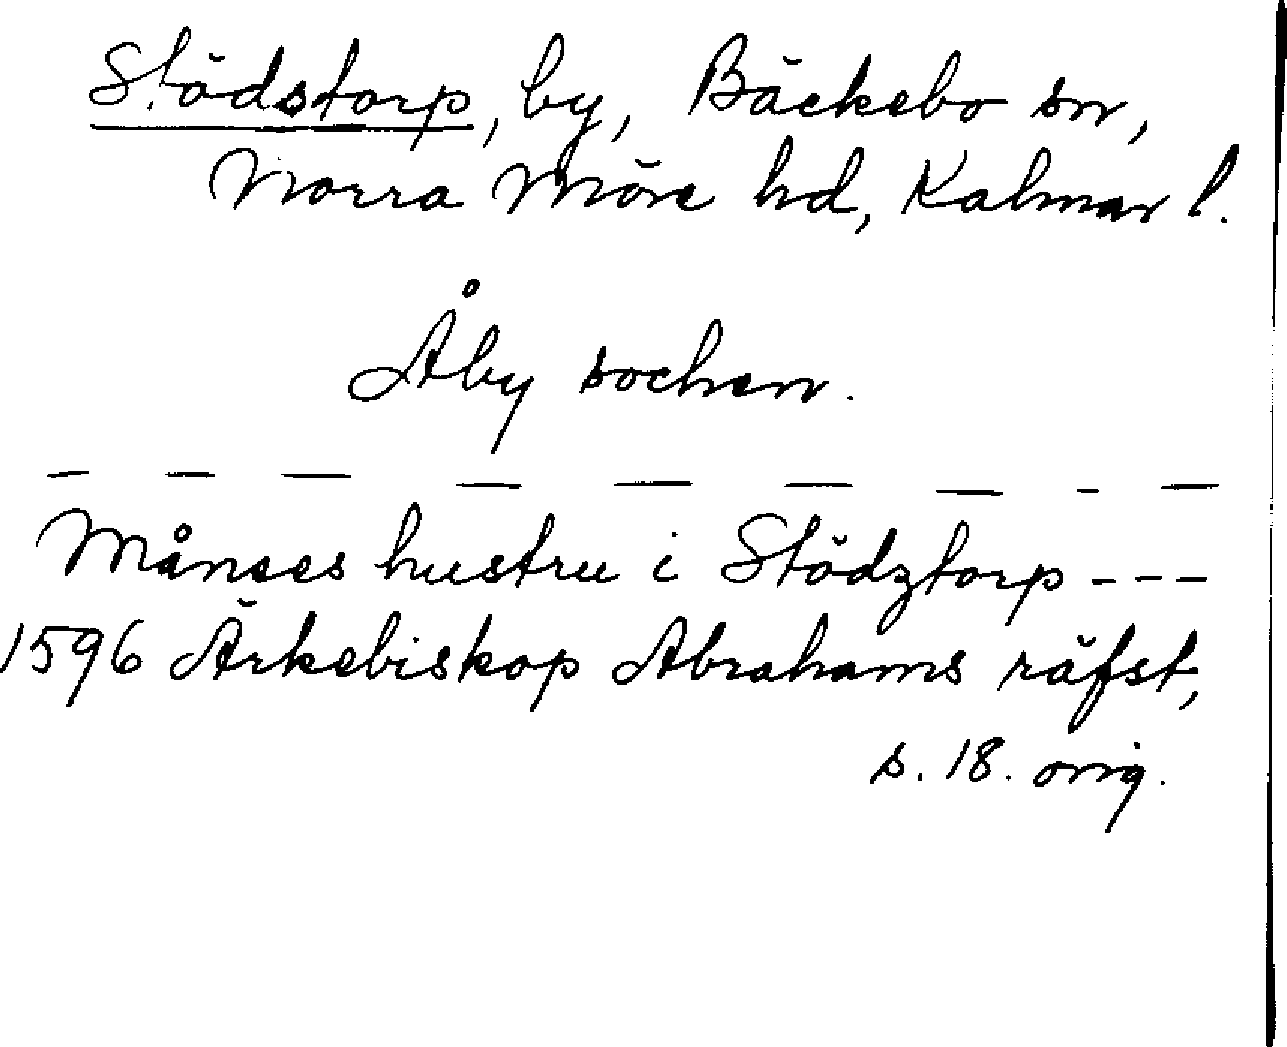 Stödstorp, by, Bäckebo sn,
Norra Möre hd, Kalmar l.
Åby sochen.
— — — — — — — - —
Månses hustru i Stödztorp ---
1596 Ärkebiskop Abrahams räfst,
s. 18. orig.